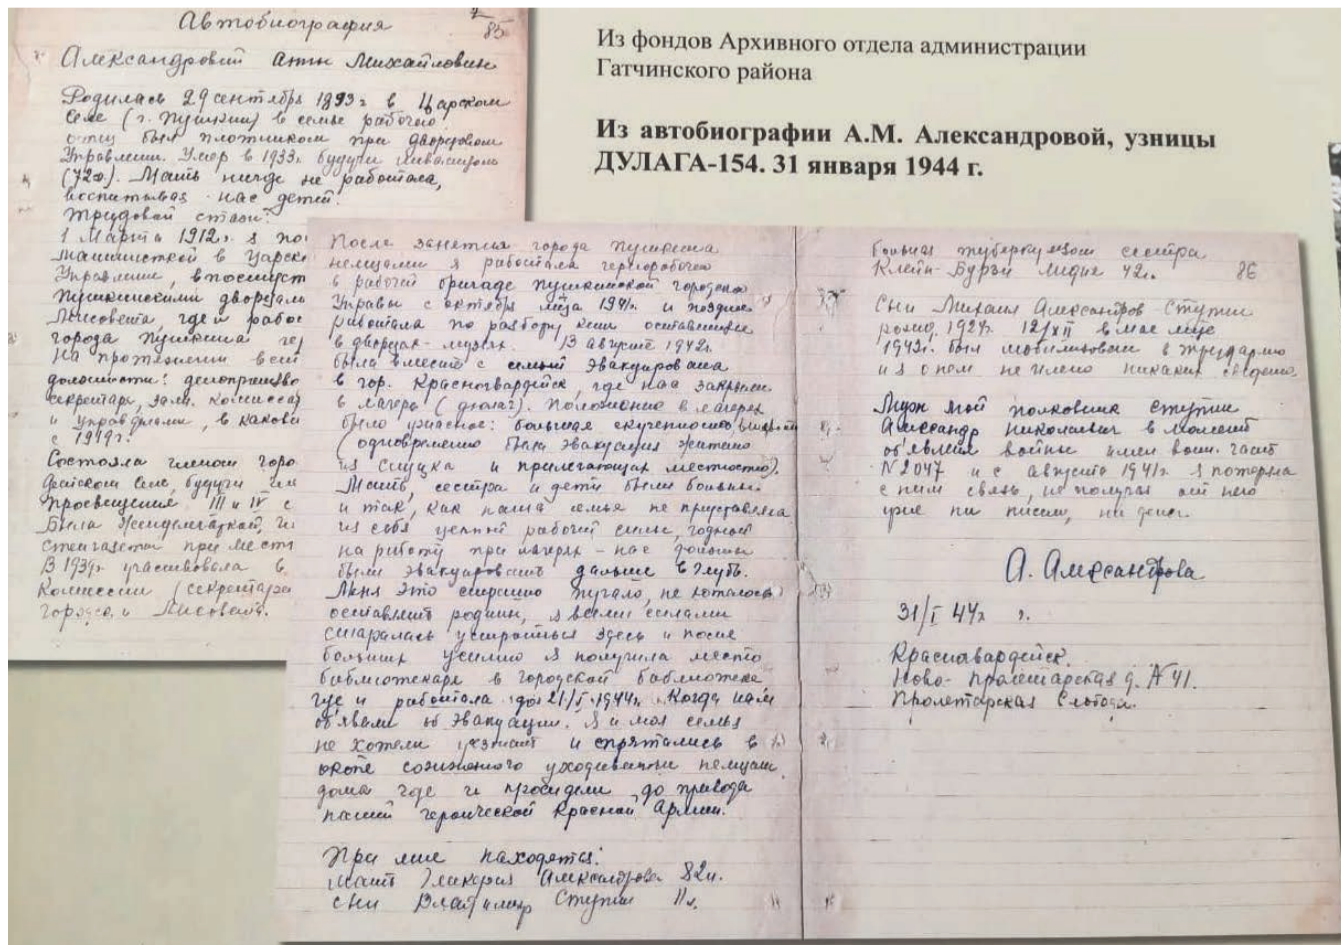 Автобиография
85
Александровой Анны Михайловны
Родилась 29 сентября 1893 г в Царском
Селе (г. Пушкин) в семье рабочего
отец был плотником при дворцовом
Управлении. Умер в 1933г будучи инвалидом
(72л). Мать нигде не работала,
воспитывая нас детей.
Трудовой стаж:
1 Марта 1912г. я по
машинисткой в Царск
Управление, впоследст
Пушкинскими дворцами
Лисовета, где и рабо
города Пушкина
На протяжении всей
должности: делопроизво
секретарь, зам. комиссар
и управделами, в каково
с 1919г.
Состояла членом горо
Детском Селе, будучи
просвещения III и IV с
Была
стенгазеты при мест
В 1939г участвовала в
Комиссии (секретаре
города и Лисовета.
Из фондов Архивного отдела администрации
Гатчинского района
Из автобиографии А.М. Александровой, узницы
ДУЛАГА-154. 31 января 1944 г.
После занятия города Пушкина
немцами я работала чернорабочей
в рабочей бригаде Пушкинской городской
Управы с октября м-ца 1941г. и позднее
работала по разбору оставшихся
в дворцах-музеях. В августе 1942г.
была вместе с семьей эвакуирована
в гор. Красногвардейск, где нас закрыли
в лагерь (дулаг). Положение в лагерях
было ужасное: большая скученность,
(одновременно была эвакуация жителей
из Слуцка и прилегающих местностей).
Мать, сестра и дети были больны
и так, как наша семья не представляла
из себя ценной рабочей силы, годной
на работу при лагерях – нас должны
были эвакуировать дальше вглубь.
Меня это страшно пугало, не хотелось
оставлять родину, я всеми силами
старалась устроиться здесь и после
больших усилий я получила место
библиотекаря в городской библиотеке
где и работала до 21/I 1944г. Когда нам
объявили об эвакуации. Я и моя семья
не хотели уезжать и спрятались в
окопе сожженого уходившими немцами
дома где и просидели до прихода
нашей героической Красной Армии.
При мне находятся:
Мать Гликерия Александрова 82л.
сын Владимир Ступин 11л.
больная туберкулезом сестра
Клейн-Бурзи Лидия 42л.
86
Сын Михаил Александров-Ступин
рожд. 1924г. 12/XII в мае м-це
1943г. был мобилизован в трудармию
и я о нем не имею никаких сведений.
Муж мой полковник Ступин
Александр Николаевич в момент
об'явления войны имел воин. часть
N 2047 и с августа 1941г. я потеряла
с ним связь, не получая от него
уже ни писем, ни денег.
А. Александрова
31/I 44г г.
Красногвардейск.
Ново-Пролетарская д. № 41.
Пролетарская Слобода.